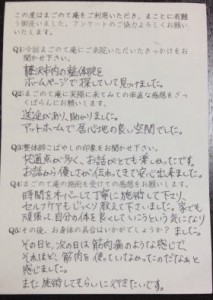 この度はまごのて庵をご利用いただき、まことに有難
う御座いました。アンケートのご協力よろしくお願い
いたします。
Q1今回まごのて庵にご来院いただいたきっかけをお
聞かせ下さい。
藤沢市内の整体院を
ホームページで探していて見つけました。
Q2まごのて庵に実際に来てみての率直な感想をざっ
くばらんにお願いします。
送迎があり、助かりました。
アットホームで居心地の良い空間でした。
Q3整体師こばやしの印象をお聞かせ下さい。
共通点が多く、お話がとても楽しめたです。
お話から優しさが伝わってきて安心出来ました。
Q4まごのて庵の施術を受けての感想をお願いします。
時間をオーバーして丁寧に施術して下さり、
セルフケアもじっくり教えて下さいました。家でも
頑張って自分の体を良くしていこうという気になり
Q5その後、お身体の具合はいかがでしょうか? ました。
その日と、次の日は筋肉痛のような感じで、
それほど、筋肉を使っていなかったのだなぁと
感じました。
また施術してもらいに行きたいです。